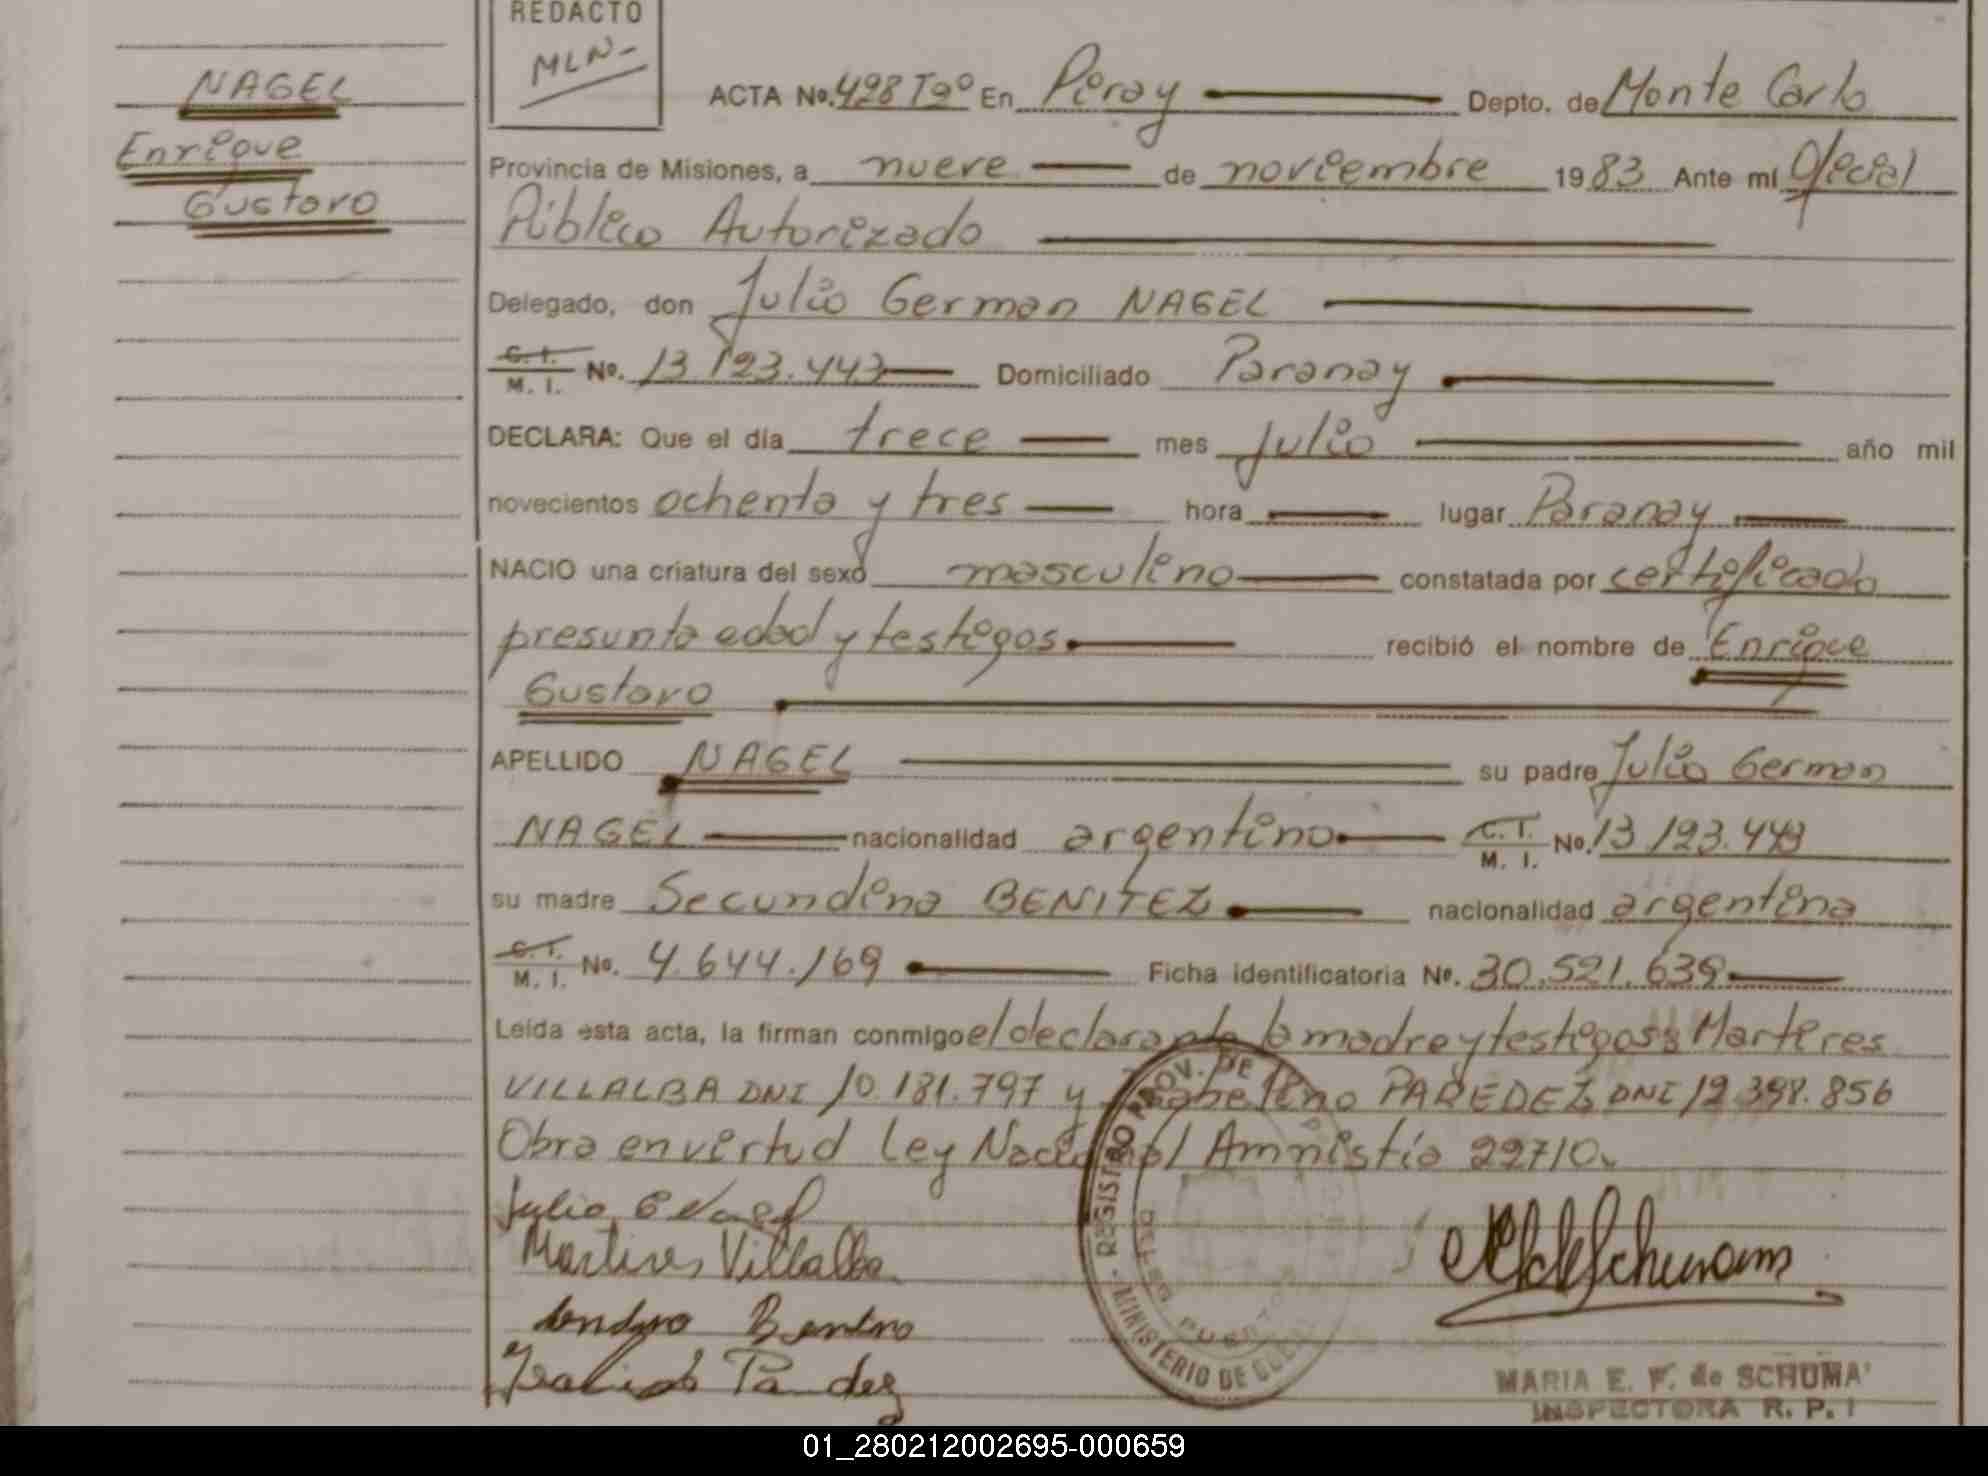 REDACTO
MLN-
NAGEL
Enrique
Gustavo
ACTA No. 498 Tº En Piray Depto. de Monte Carlo
Provincia de Misiones, a nueve de noviembre 1983 Ante mí Oficial
Público Autorizado
Delegado, don Julio German NAGEL
C. I. M. I. No. 13 193.443 Domiciliado Paranay
DECLARA: Que el día trece mes Julio año mil
novecientos ochenta y tres hora lugar Paranay
NACIO una criatura del sexo masculino constatada por certificado
presunta edad y testigos recibió el nombre de Enrique
Gustavo
APELLIDO NAGEL su padre Julio German
NAGEL nacionalidad argentino C. I. M. I. No. 13 193.443
su madre Secundina BENITEZ nacionalidad argentina
C. I. M. I. No. 4.644.169 Ficha identificatoria No. 30.521.639
Leída esta acta, la firman conmigo el declarante la madre y testigos: Martires
VILLALBA DNI 10.181.797 y PAREDEZ DNI 12.398.856
Obra en virtud Ley Nacional Amnistía 22710.
Julio G Nagel
Martires Villalba
REGISTRO PROV. DE
MINISTERIO DE
MARIA E. F. de SCHUMA
INSPECTORA R. P.
01_280212002695-000659